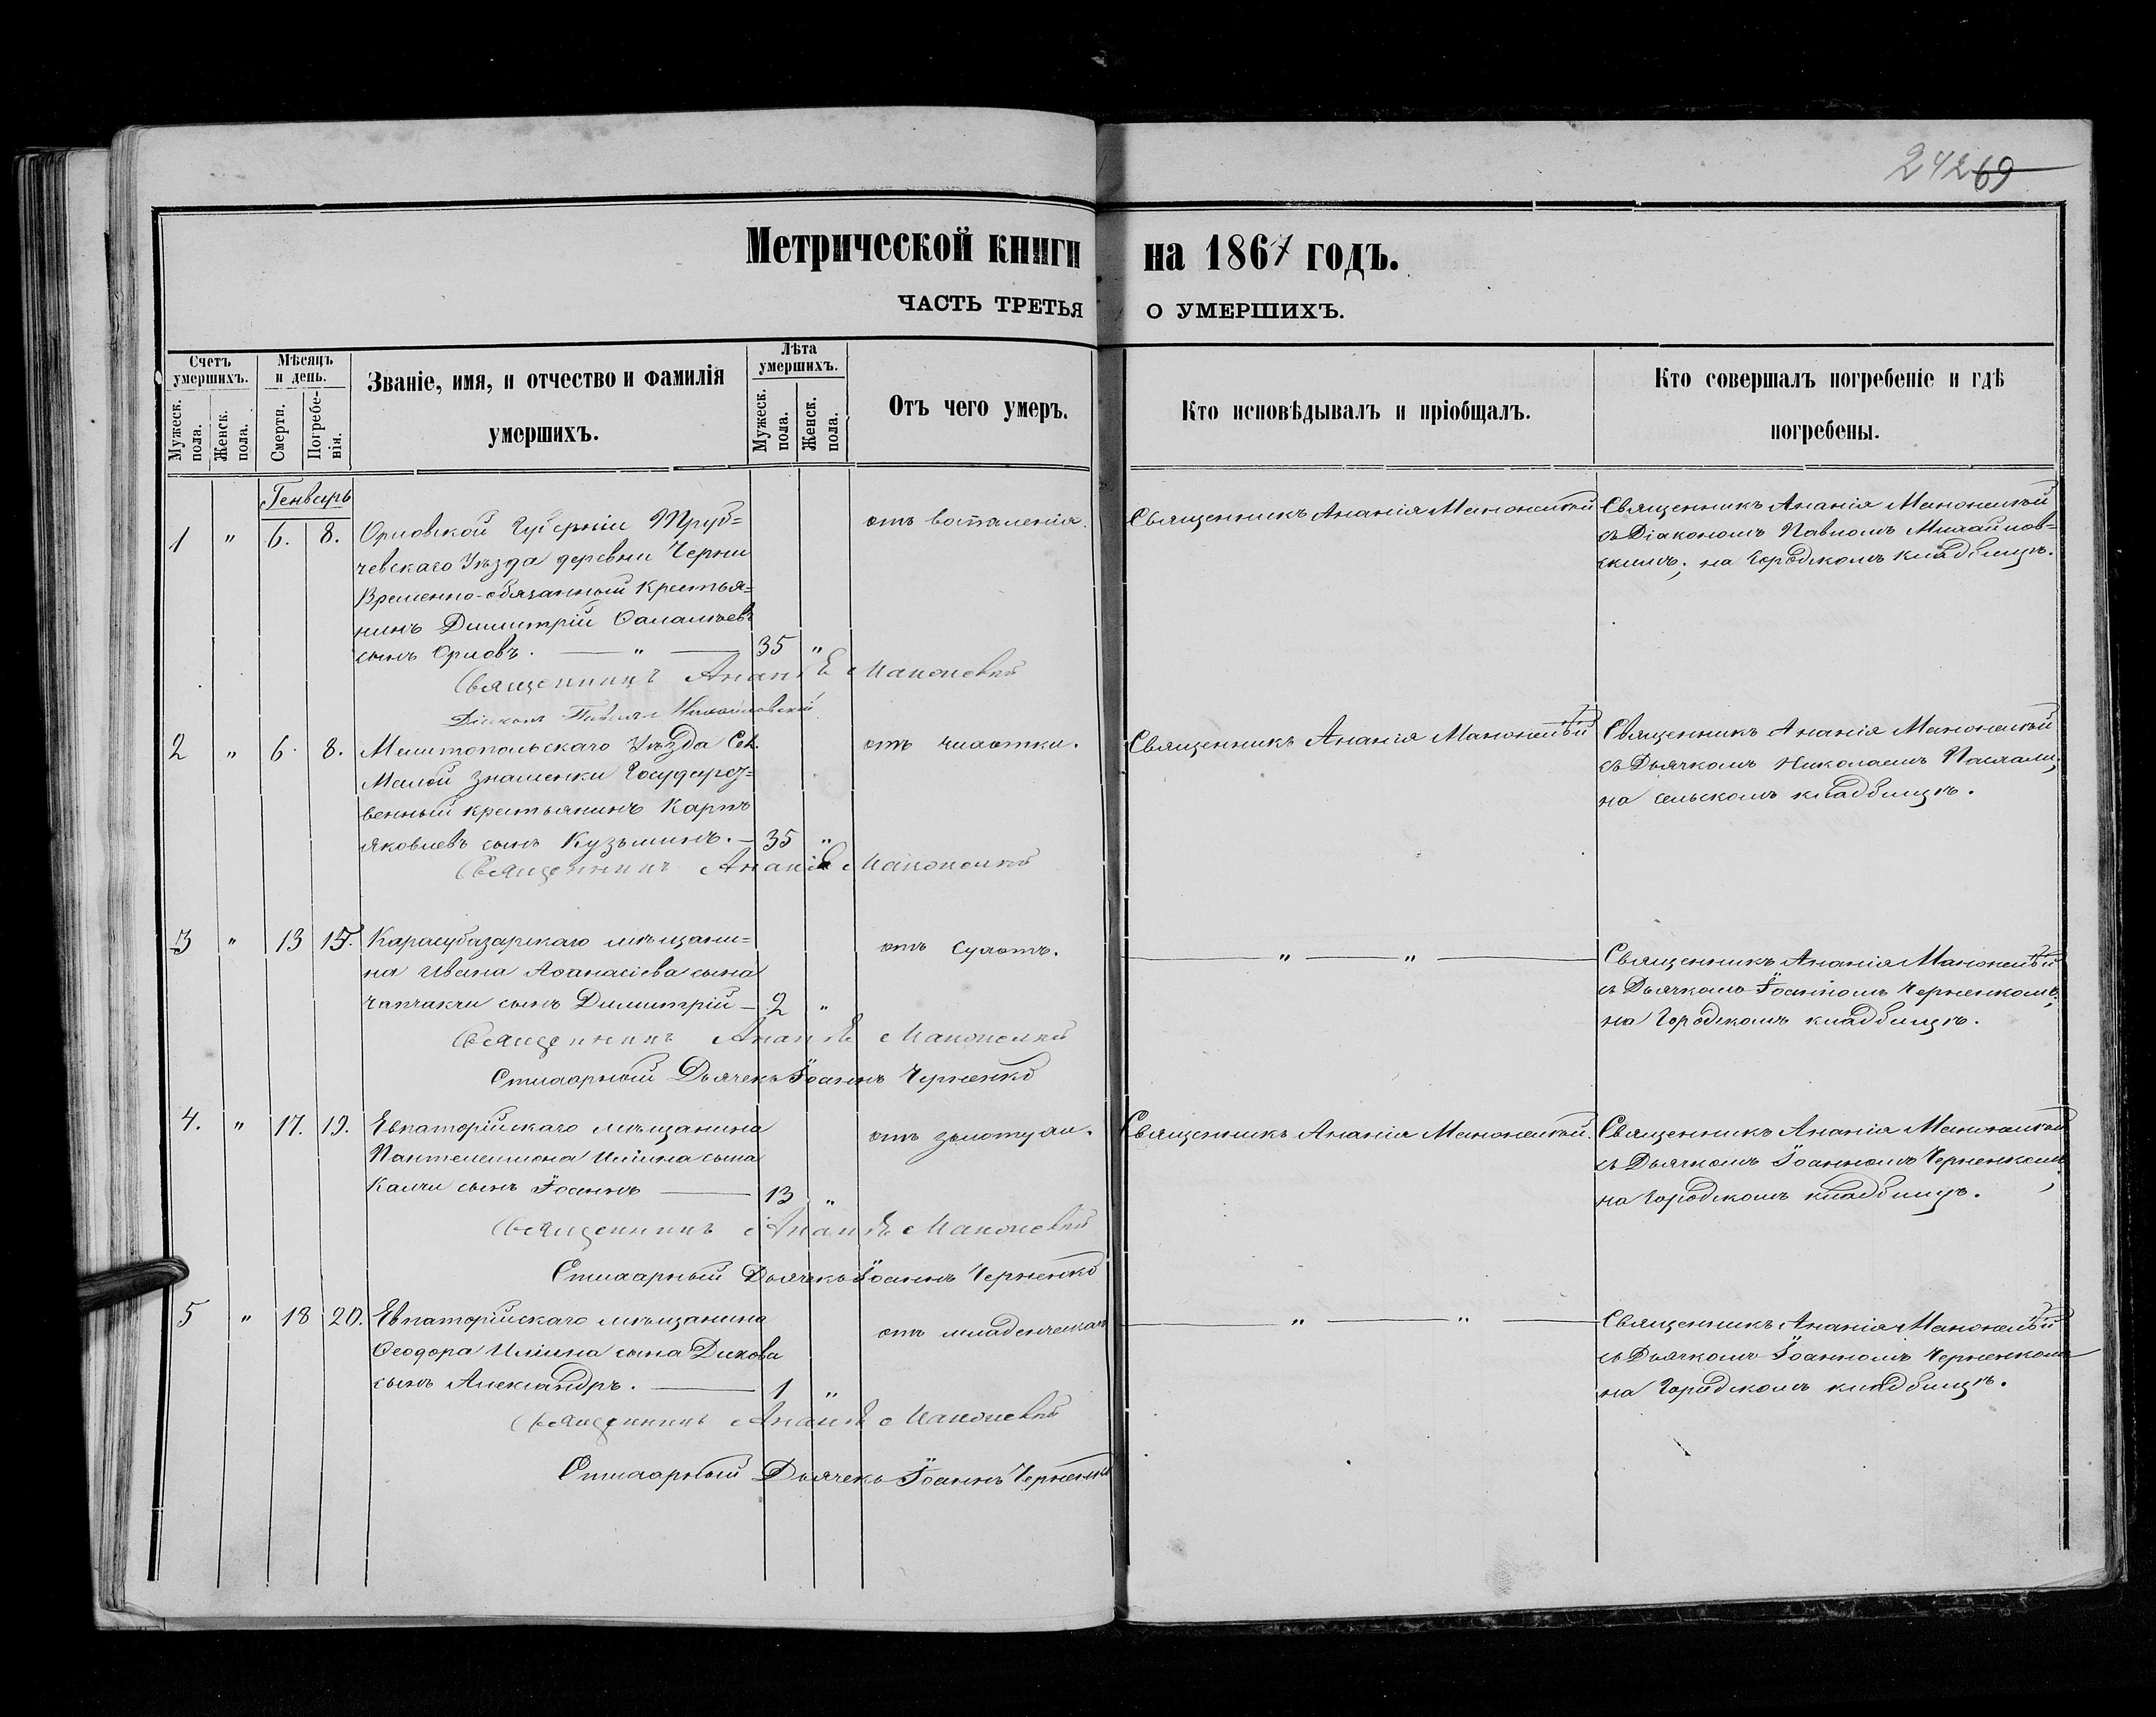 242 69
Метрической книги на 1867 годъ.
ЧАСТЬ ТРЕТЬЯ О УМЕРШИХЪ.
Счетъ умершихъ.
Мужеск. пола.
Женск. пола.
Мѣсяцъ и день.
Смерти.
Погребе-
нія.
Званіе, имя, и отчество и фамилія
умершихъ.
Лѣта умершихъ.
Мужеск. пола.
Женск. пола.
Отъ чего умеръ.
Кто исповѣдывалъ и пріобщалъ.
Кто совершалъ погребеніе и гдѣ
погребены.
Генварь
1 " 6. 8. Орловской Губерніи Труб=
чевскаго Уѣзда деревни Черни
Временно-обязанный Крестья=
нинъ Димитрій
сынъ Орловъ. — " — 35 "
отъ воспаленія.
Священникъ Ананія Маконскій
Священникъ Ананія Маконскій
съ Діакономъ Павломъ Михайлов-
скимъ; на Городскомъ кладбищѣ.
Священникъ Ананія Маконскій
Діаконъ Павелъ Михайловскій
2 " 6. 8. Мелитопольскаго Уѣзда Сел.
Малой Знаменки Государст=
венный крестьянинъ Карпъ
Яковлевъ сынъ Кузьминъ. — 35 "
отъ чахотки.
Священникъ Ананія Маконскій
Священникъ Ананія Маконскій
съ Дьячкомъ Николаемъ
на сельскомъ кладбищѣ.
Священникъ Ананія Маконскій
3 " 13 15. Карасубазарскаго мѣщани=
на Ивана Аѳанасіева сына
Чапчакчи сынъ Димитрій — 2 "
отъ сухотъ.
— " — " —
Священникъ Ананія Маконскій
съ Дьячкомъ Іоанномъ Черненкомъ;
на Городскомъ кладбищѣ.
Священникъ Ананія Маконскій
Стихарный Дьячекъ Іоаннъ Черненко
4. " 17. 19. Евпаторійскаго мѣщанина
Пантелеимона Иліина сына
Калчи сынъ Іоаннъ — 13 "
отъ золотухи.
Священникъ Ананія Маконскій.
Священникъ Ананія Маконскій
съ Дьячкомъ Іоанномъ Черненкомъ,
на Городскомъ кладбищѣ.
Священникъ Ананія Маконскій
Стихарный Дьячекъ Іоаннъ Черненко
5 " 18 20. Евпаторійскаго мѣщанина
Ѳеодора Иліина сына Дикова
сынъ Александръ. — 1 "
отъ младенческой
— " — " —
Священникъ Ананія Маконскій
съ Дьячкомъ Іоанномъ Черненкомъ
на Городскомъ кладбищѣ.
Священникъ Ананія Маконскій
Стихарный Дьячекъ Іоаннъ Черненко